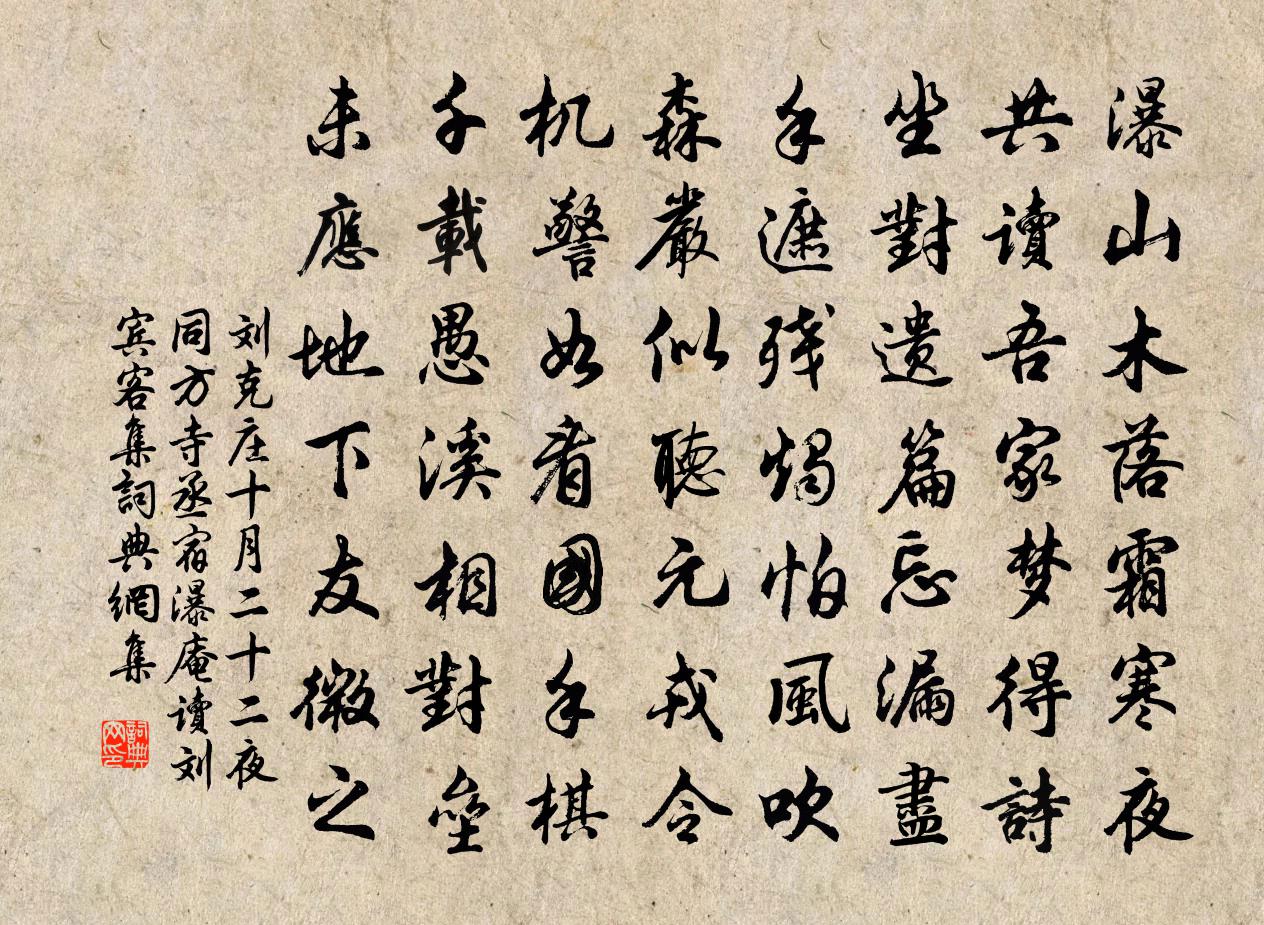 瀑山木落霜寒夜
共读吾家梦得詩
坐對遗篇忘漏盡
手遮残燭怕風吹
森嚴似聽元戎令
机警如看國手棋
千載愚溪相對壘
未應地下友微之
刘克庄十月二十二夜
同方寺丞宿瀑庵读刘
宾客集詞典網集
詞典网印